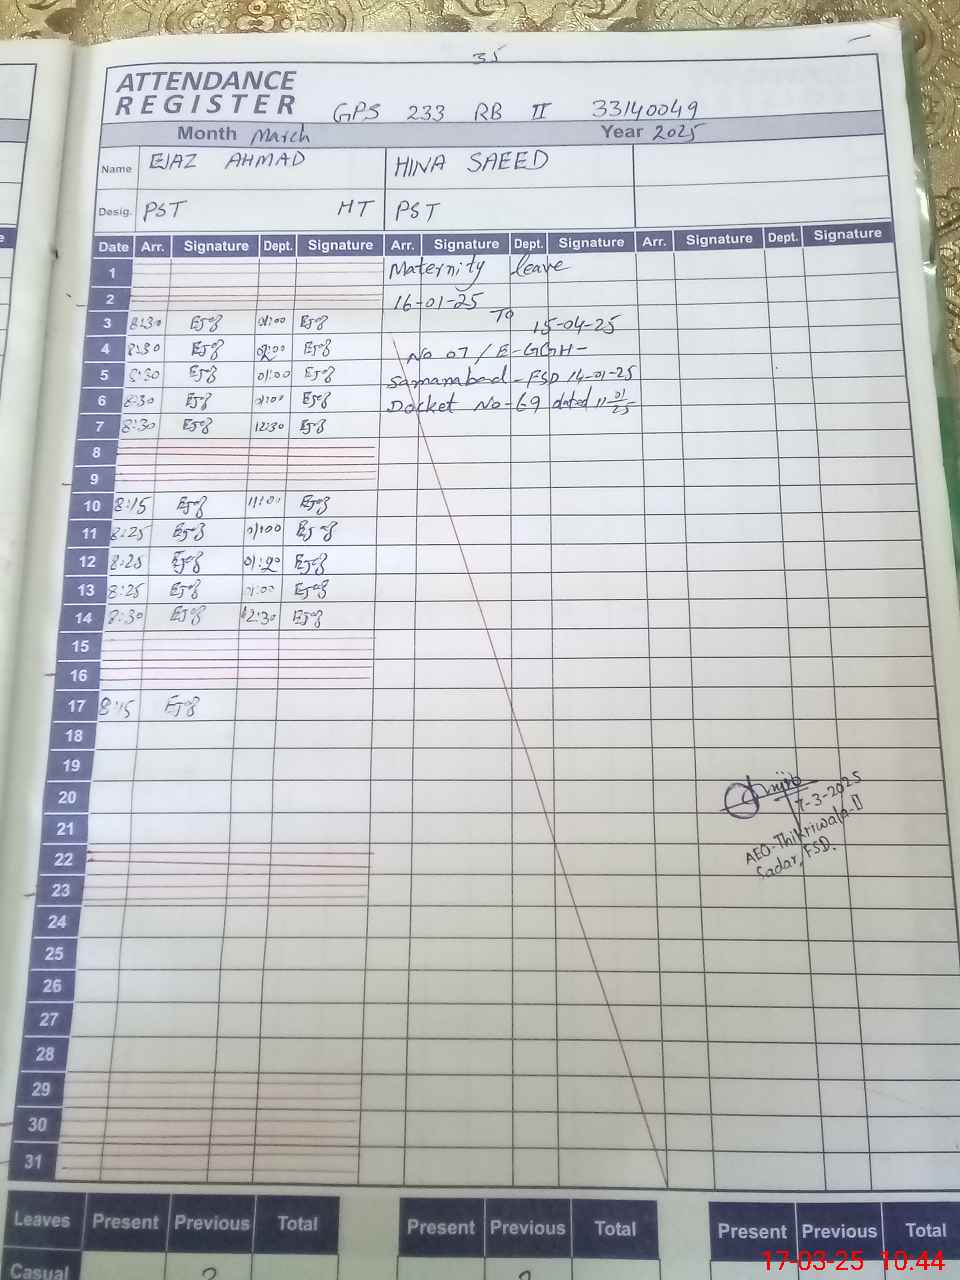 35
ATTENDANCE
REGISTER GPS 233 RB II 33140049
Month March Year 2025
Name EJAZ AHMAD HINA SAEED
Desig. PST HT PST
Date Arr. Signature Dept. Signature Arr. Signature Dept. Signature Arr. Signature Dept. Signature
1 Maternity leave
2 16-01-25 To
3 8:30 Ejaz 01:00 Ejaz 15-04-25
4 8:30 Ejaz 02:00 Ejaz No 07/E-GGH-
5 8:30 Ejaz 01:00 Ejaz Samanabad-FSD 14-01-25
6 8:30 Ejaz 01:00 Ejaz Docket No-69 dated 11-01/25
7 8:30 Ejaz 12:30 Ejaz
8
9
10 8:15 Ejaz 11:00 Ejaz
11 8:25 Ejaz 01:00 Ejaz
12 8:25 Ejaz 01:20 Ejaz
13 8:25 Ejaz 01:00 Ejaz
14 8:30 Ejaz 12:30 Ejaz
15
16
17 8:15 Ejaz
18
19
20
7-3-2025
21
AEO-Thikriwala-II
22
Sadar, FSD.
23
24
25
26
27
28
29
30
31
Leaves Present Previous Total Present Previous Total Present Previous Total
Casual
17-03-25 10:44